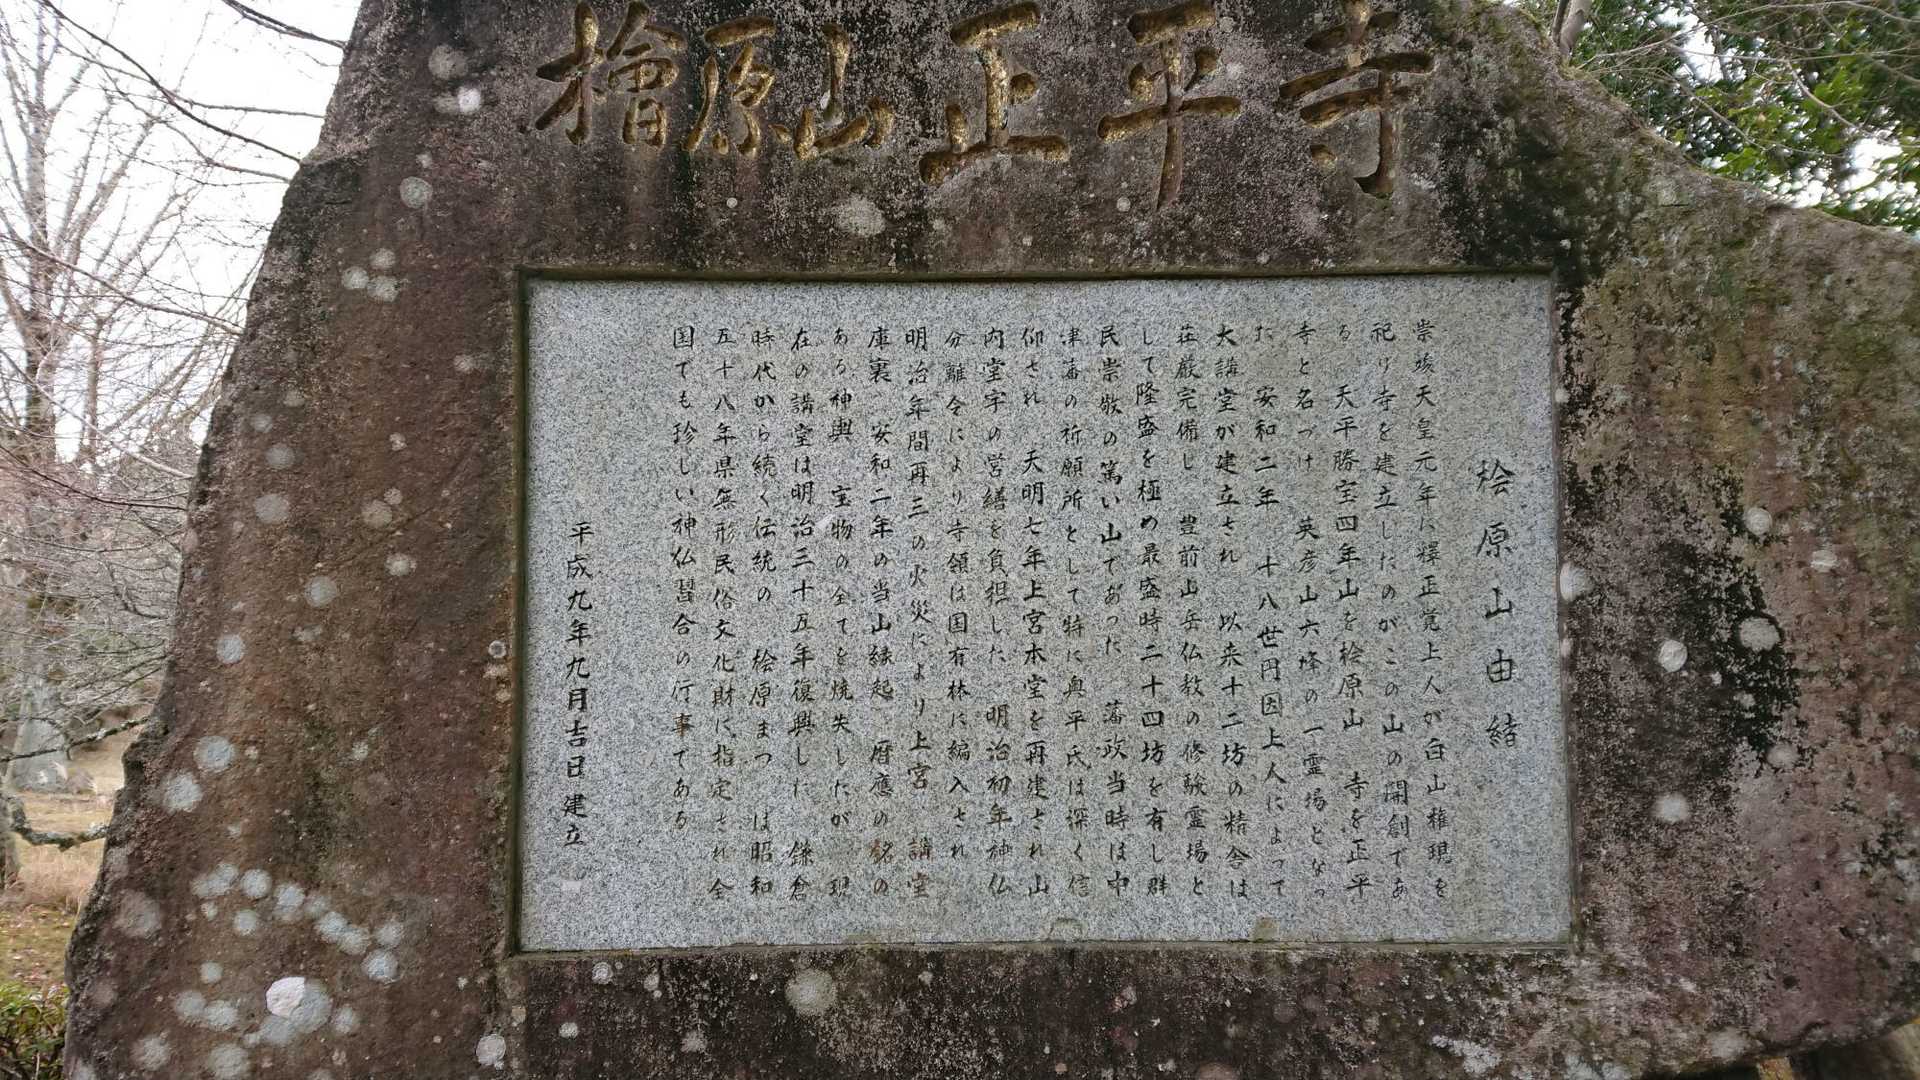 檜原山正平寺
桧原山由緒
崇峻天皇元年に釋正覚上人が白山権現を
祀り寺を建立したのがこの山の開創であ
る 天平勝宝四年山を桧原山 寺を正平
寺と名づけ 英彦山六峰の一霊場となっ
た 安和二年 十八世円因上人によって
大講堂が建立され 以来十二坊の精舎は
荘厳完備し 豊前山岳仏教の修験霊場と
して隆盛を極め最盛時二十四坊を有し群
民崇敬の篤い山であった 藩政当時は中
津藩の祈願所として特に奥平氏は深く信
仰され 天明七年上宮本堂を再建され山
内堂宇の営繕を負担した 明治初年神仏
分離令により寺領は国有林に編入され
明治年間再三の火災により上宮 講堂
庫裏 安和二年の当山縁起 暦應の銘の
ある神輿 宝物の全てを焼失したが 現
在の講堂は明治三十五年復興した 鎌倉
時代から続く伝統の 桧原まつ は昭和
五十八年県無形民俗文化財に指定され全
国でも珍しい神仏習合の行事である
平成九年九月吉日建立